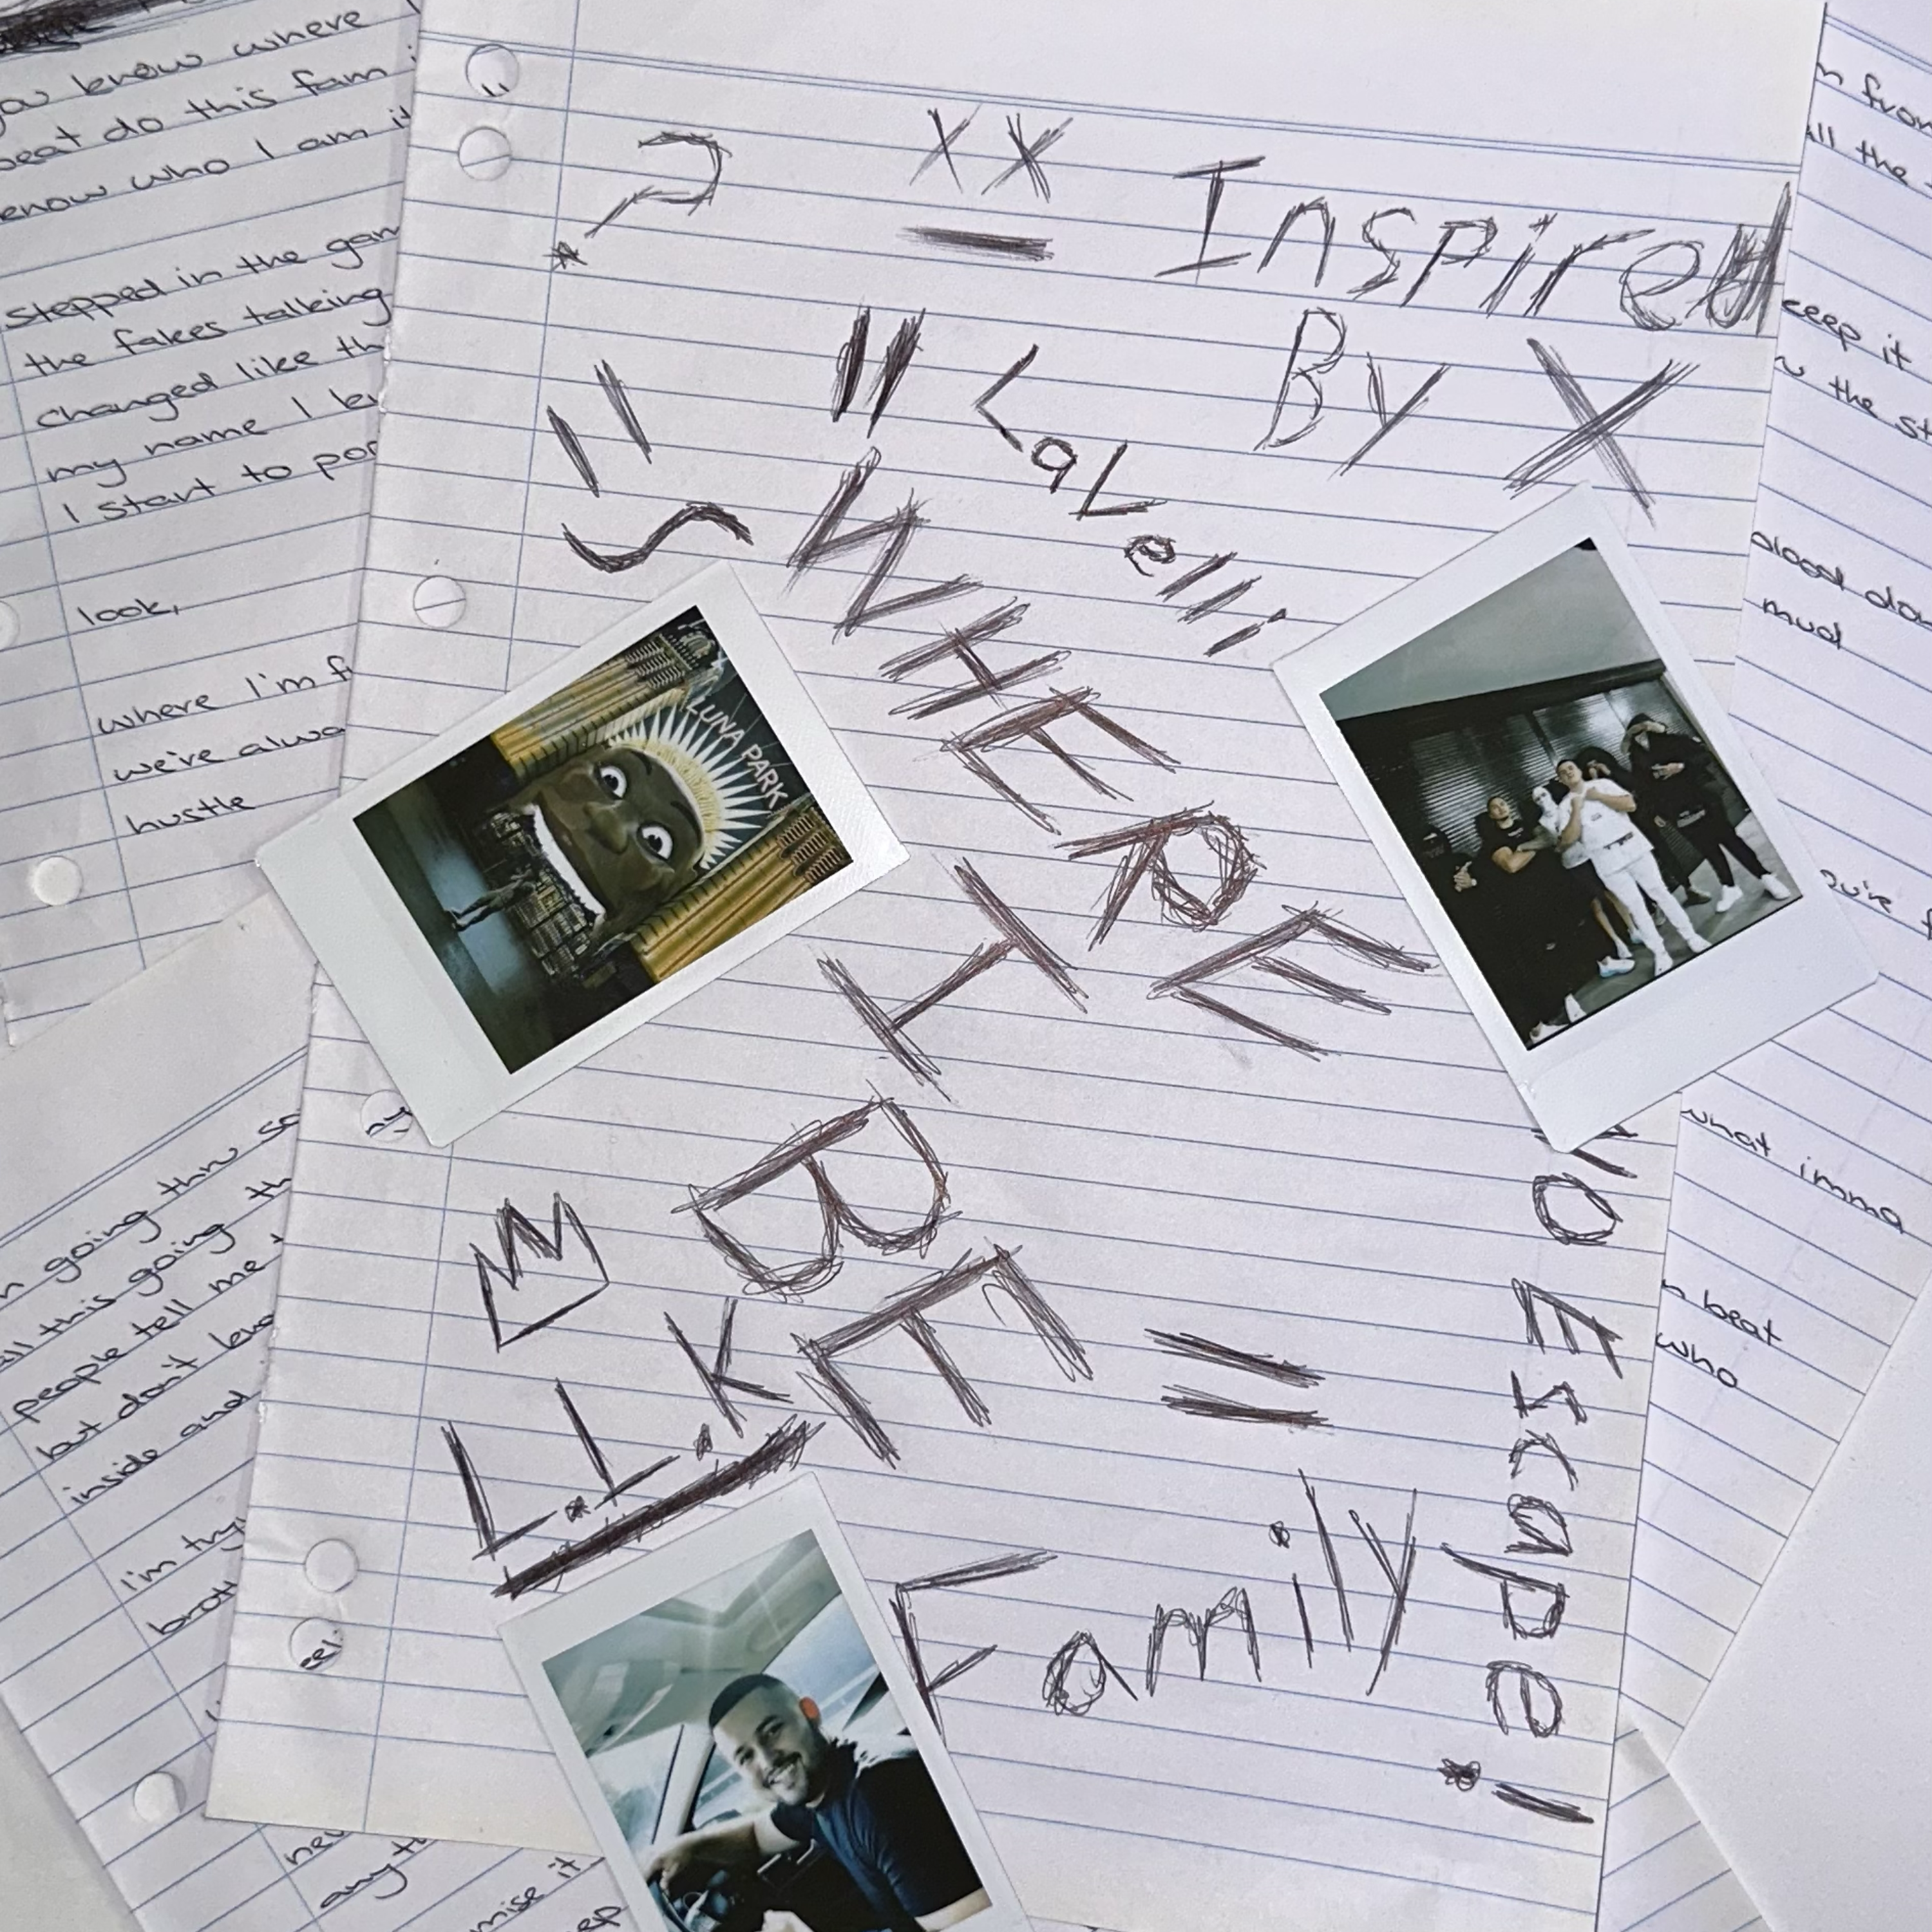 you know where
beat do this fam
know who I am it
stepped in the gam
the fakes talking
changed like th
my name I
I start to
look,
where I'm
we're alwa
hustle
?
XX
Inspired
By X
LaLelli
WHERE
I
BE
L.L.K
Family
NO Escape!
LUNA PARK
going thru
all this going th
people tell me
but don't
inside and
I'm
any
mise it
from
all the
keep it
the
blood
mud
you're
what imma
beat
who